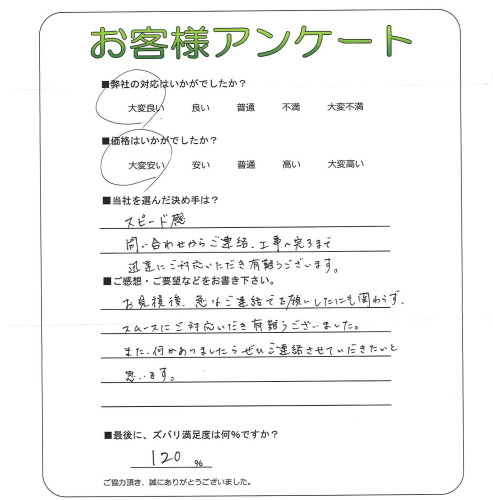 お客様アンケート
■弊社の対応はいかがでしたか？
大変良い 良い 普通 不満 大変不満
■価格はいかがでしたか？
大変安い 安い 普通 高い 大変高い
■当社を選んだ決め手は？
スピード感
問い合わせからご連絡、工事へ完了まで
迅速にご対応いただき有難うございます。
■ご感想・ご要望などをお書き下さい。
お見積後、急なご連絡でお願いしたにも関わらず、
スムースにご対応いだき有難うございました。
また、何かありましたらぜひご連絡させていだきたいと
思います。
■最後に、ズバリ満足度は何%ですか？
120 %
ご協力頂き、誠にありがとうございました。